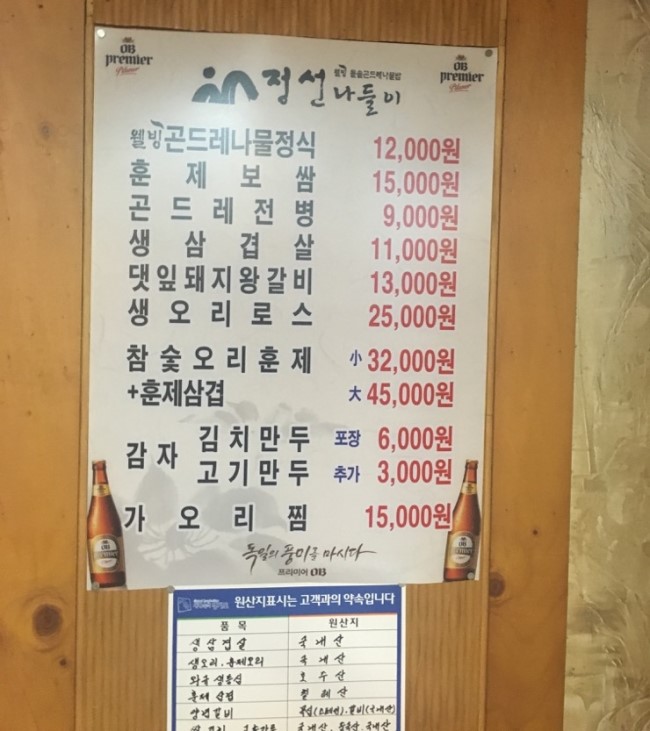 OB
premier
Pilsner
OB
premier
Pilsner
정선 웰빙 돌솥곤드레나물밥
나들이
웰빙 곤드레나물정식 12,000원
훈제보쌈 15,000원
곤드레전병 9,000원
생삼겹살 11,000원
댓잎돼지왕갈비 13,000원
생오리로스 25,000원
참숯오리훈제 小 32,000원
+훈제삼겹 大 45,000원
감자 김치만두 포장 6,000원
고기만두 추가 3,000원
가오리찜 15,000원
독일의 풍미를 마시다
프리미어 OB
원산지표시는 고객과의 약속입니다
품목 원산지
생삼겹살 국내산
생오리, 훈제오리 국내산
호주산
훈제 삼겹 칠레산
양념갈비
국내산, 중국산, 국내산